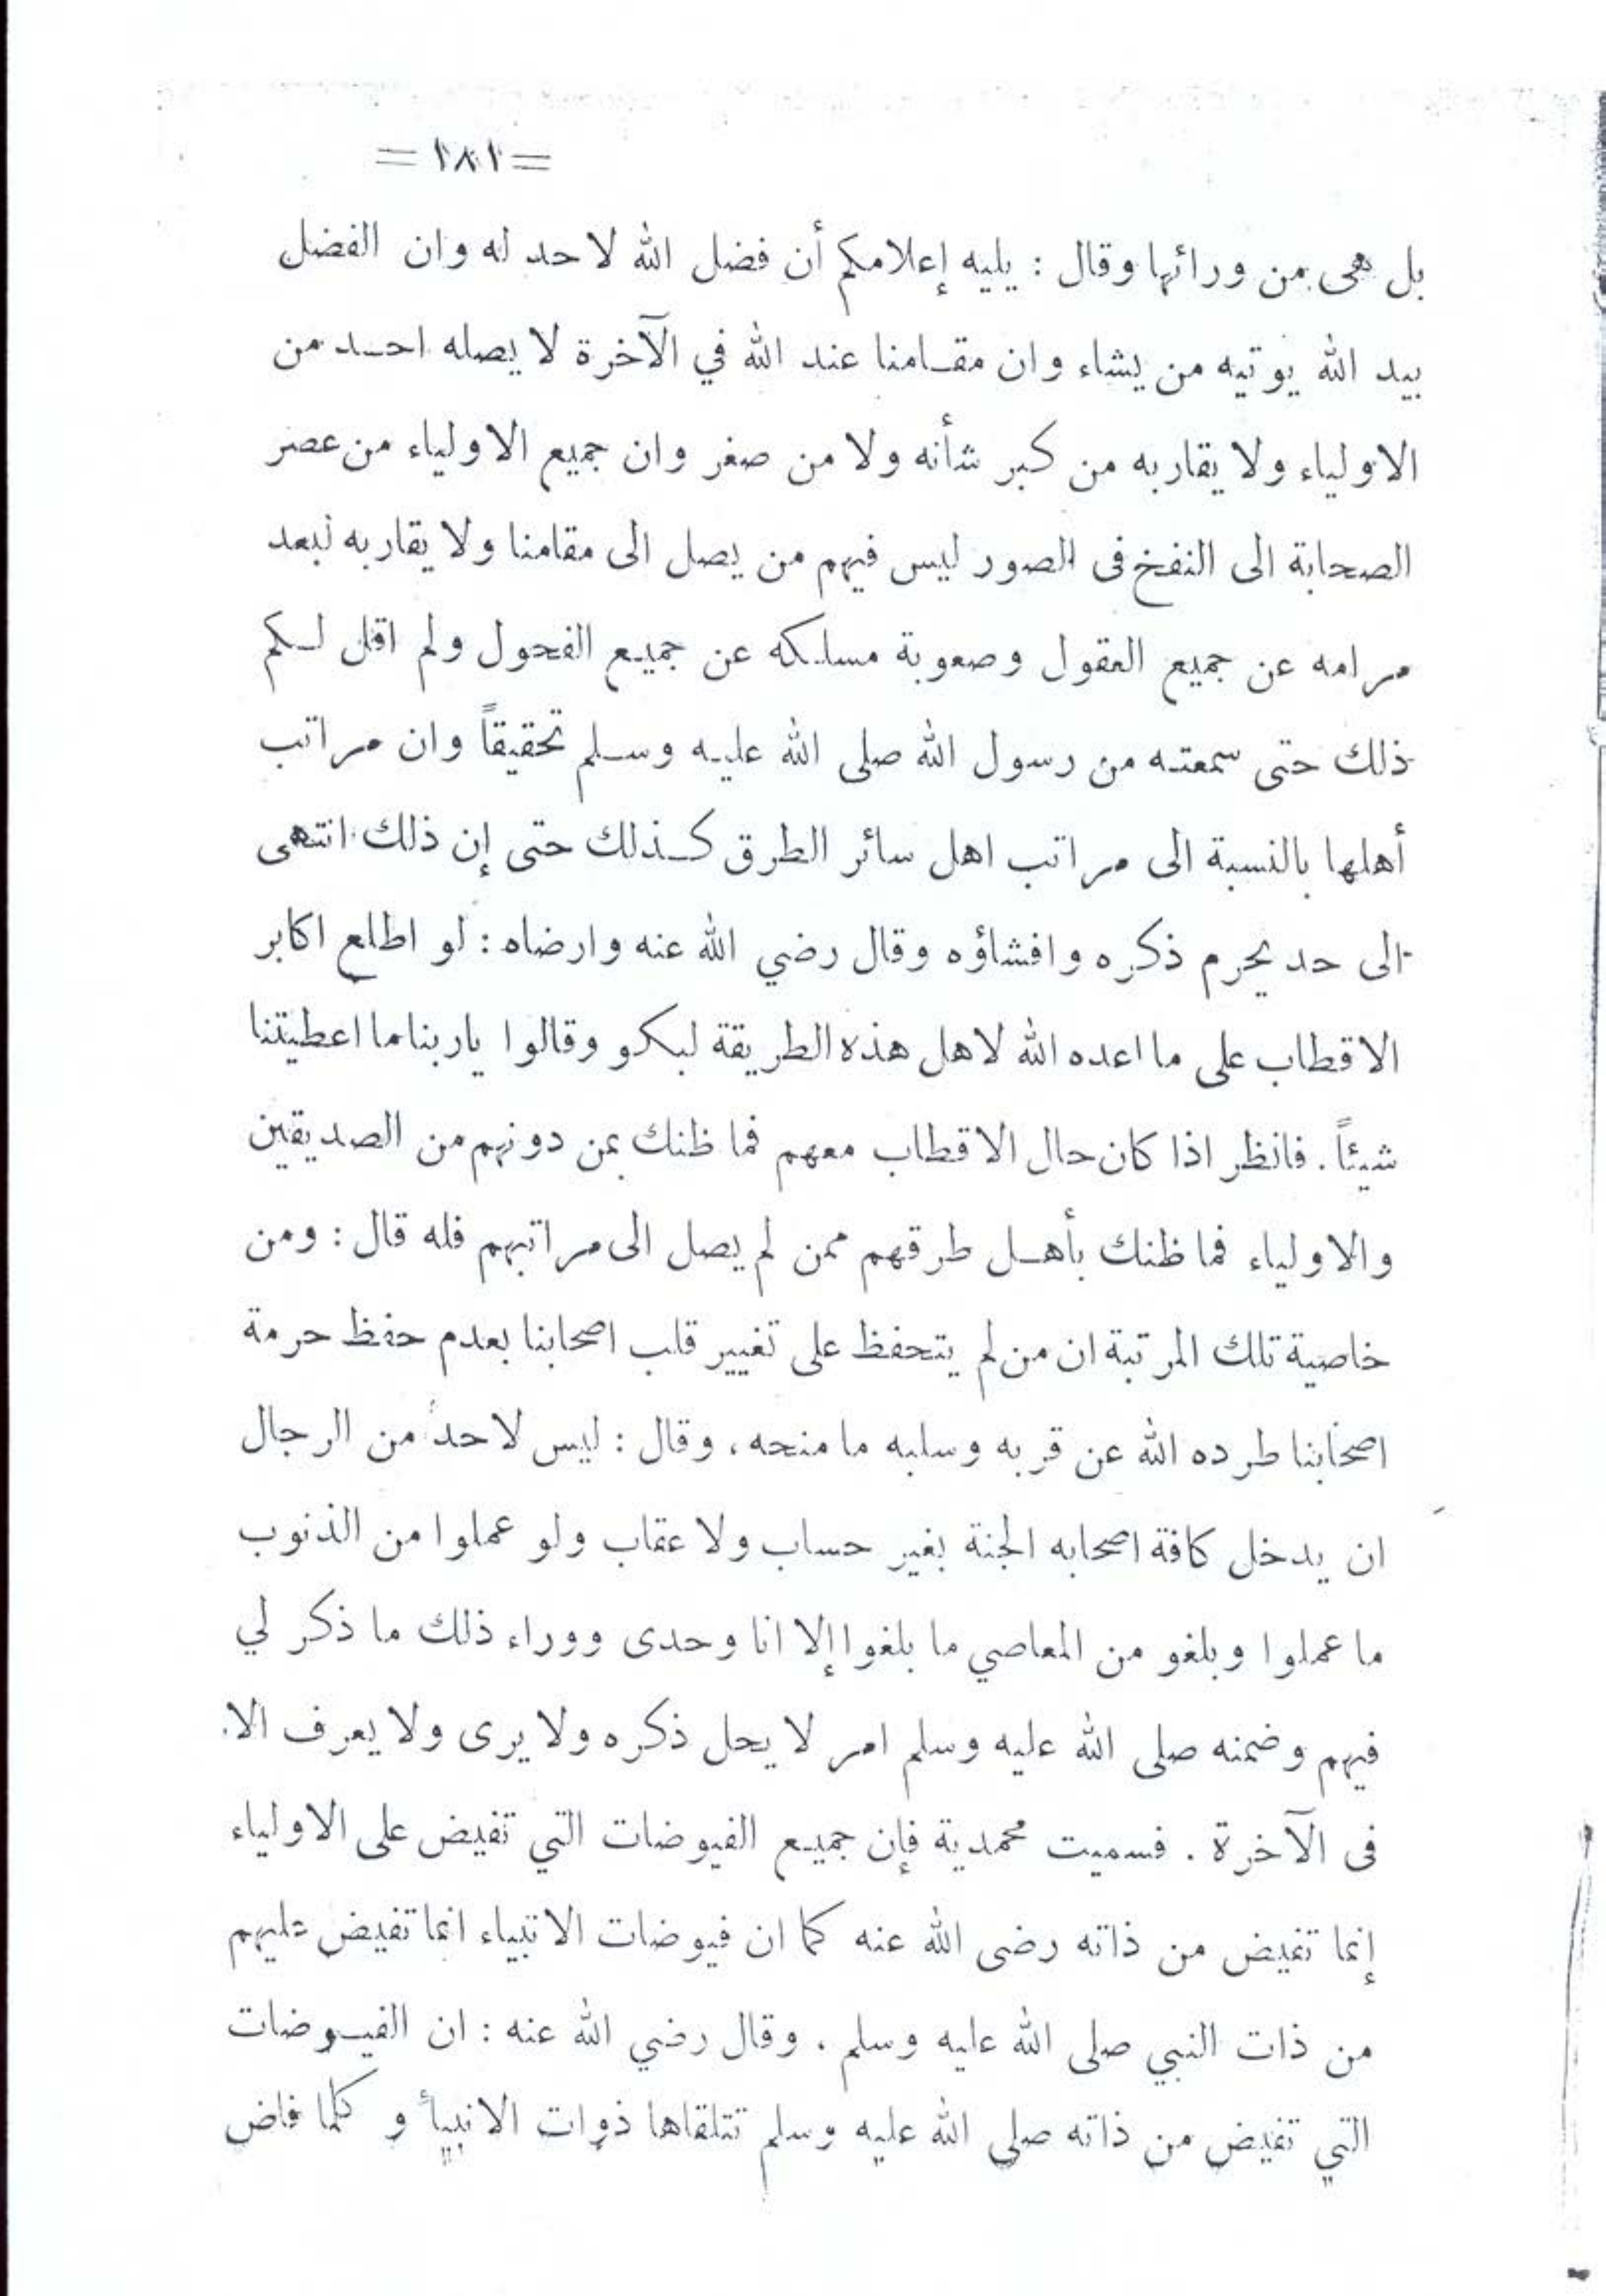 =٢٨٢=
بل هى من ورائها وقال : يليه إعلامكم أن فضل الله لا حد له وان الفضل
بيد الله يوتيه من يشاء وان مقامنا عند الله في الآخرة لا يصله احد من
الاولياء ولا يقاربه من كبر شأنه ولا من صغر وان جميع الاولياء من عصر
الصحابة الى النفخ فى الصور ليس فيهم من يصل الى مقامنا ولا يقاربه لبعد
مرامه عن جميع العقول وصعوبة مسلكه عن جميع الفحول ولم اقل لكم
ذلك حتى سمعته من رسول الله صلى الله عليه وسلم تحقيقاً وان مراتب
أهلها بالنسبة الى مراتب اهل سائر الطرق كذلك حتى إن ذلك انتهى
الى حد يحرم ذكره وافشاؤه وقال رضي الله عنه وارضاه : لو اطلع اكابر
الاقطاب على ما اعده الله لاهل هذه الطريقة لبكو وقالوا ياربنا ما اعطيتنا
شيئاً . فانظر اذا كان حال الاقطاب معهم فما ظنك بمن دونهم من الصديقين
والاولياء فما ظنك بأهل طرقهم ممن لم يصل الى مراتبهم فله قال : ومن
خاصية تلك المرتبة ان من لم يتحفظ على تغيير قلب اصحابنا بعدم حفظ حرمة
اصحابنا طرده الله عن قربه وسلبه ما منحه ، وقال : ليس لاحد من الرجال
ان يدخل كافة اصحابه الجنة بغير حساب ولا عقاب ولو عملوا من الذنوب
ما عملوا وبلغو من المعاصي ما بلغوا إلا انا وحدى ووراء ذلك ما ذكر لي
فيهم وضمنه صلى الله عليه وسلم امر لا يحل ذكره ولا يرى ولا يعرف الا
فى الآخرة . فسميت محمدية فإن جميع الفيوضات التي تفيض على الاولياء
إنما تفيض من ذاته رضى الله عنه كما ان فيوضات الانبياء انما تفيض عليهم
من ذات النبي صلى الله عليه وسلم . وقال رضي الله عنه : ان الفيوضات
التي تفيض من ذاته صلى الله عليه وسلم تتلقاها ذوات الانبيأ و كلما فاض